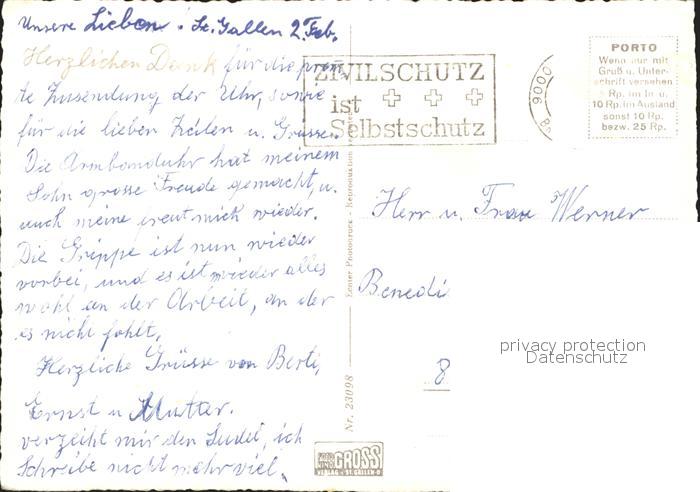 Unsere Lieben. St. Gallen 2. Feb.
Herzlichen Dank für die prom
te Zusendung der Uhr, sowie
für die lieben Zeilen u. Grüsse.
Die Armbanduhr hat meinem
Sohn grosse Freude gemacht, u.
auch meine freut mich wieder.
Die Grippe ist nun wieder
vorbei, und es ist wieder alles
wohl an der Arbeit, an der
es nicht fehlt.
Herzliche Grüsse von Berti,
Ernst u Mutter.
verzeiht mir den Sudel, ich
Schreibe nicht mehr viel.
ZIVILSCHUTZ
ist
Selbstschutz
9000
PORTO
Wenn nur mit
Gruß u. Unter-
schrift versehen
5 Rp. im In u.
10 Rp. im Ausland
sonst 10 Rp.
bezw. 25 Rp.
Herr u. Frau Werner
Benedi
8
privacy protection
Datenschutz
Nr. 23098
FOTO
GROSS
VERLAG ST. GALLEN